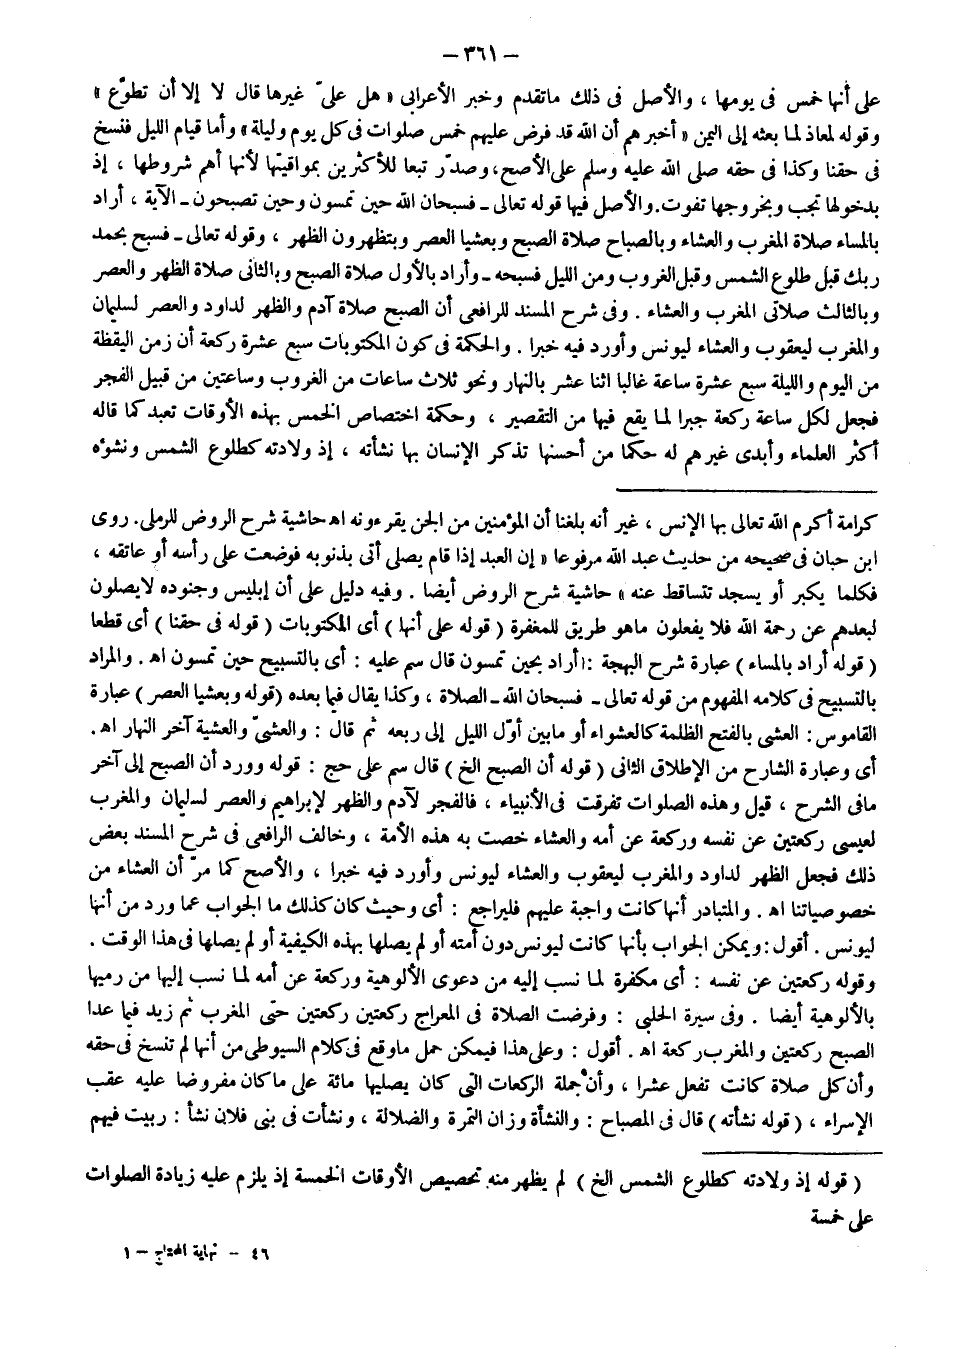 — ٣٦١ —
على أنها خمس فى يومها ، والأصل فى ذلك ماتقدم وخبر الأعرابى « هل علىّ غيرها قال لا إلا أن تطوّع »
وقوله لمعاذ لما بعثه إلى اليمن « أخبرهم أن الله قد فرض عليهم خمس صلوات فى كل يوم وليلة » وأما قيام الليل فنسخ
فى حقنا وكذا فى حقه صلى الله عليه وسلم على الأصح، وصدّر تبعا للأكثرين بمواقيتها لأنها أهم شروطها ، إذ
بدخولها تجب وبخروجها تفوت. والأصل فيها قوله تعالى ـ فسبحان الله حين تمسون وحين تصبحون ـ الآية ، أراد
بالمساء صلاة المغرب والعشاء وبالصباح صلاة الصبح وبعشيا العصر وبتظهرون الظهر ، وقوله تعالى ـ فسبح بحمد
ربك قبل طلوع الشمس وقبل الغروب ومن الليل فسبحه ـ وأراد بالأول صلاة الصبح وبالثانى صلاة الظهر والعصر
وبالثالث صلاتى المغرب والعشاء . وفى شرح المسند للرافعى أن الصبح صلاة آدم والظهر لداود والعصر لسليمان
والمغرب ليعقوب والعشاء ليونس وأورد فيه خبرا . والحكمة فى كون المكتوبات سبع عشرة ركعة أن زمن اليقظة
من اليوم والليلة سبع عشرة ساعة غالبا اثنا عشر بالنهار ونحو ثلاث ساعات من الغروب وساعتين من قبيل الفجر
فجعل لكل ساعة ركعة جبرا لما يقع فيها من التقصير ، وحكمة اختصاص الخمس بهذه الأوقات تعبد كما قاله
أكثر العلماء وأبدى غيرهم له حكما من أحسنها تذكر الإنسان بها نشأته ، إذ ولادته كطلوع الشمس ونشوّه
كرامة أكرم الله تعالى بها الإنس ، غير أنه بلغنا أن المؤمنين من الجن يقرءونه اهـ حاشية شرح الروض للرملى. روى
ابن حبان فى صحيحه من حديث عبد الله مرفوعا « إن العبد إذا قام يصلى أتى بذنوبه فوضعت على رأسه أو عاتقه ،
فكلما يكبر أو يسجد تتساقط عنه » حاشية شرح الروض أيضا . وفيه دليل على أن إبليس وجنوده لايصلون
لبعدهم عن رحمة الله فلا يفعلون ماهو طريق للمغفرة ( قوله على أنها ) أى المكتوبات ( قوله فى حقنا ) أى قطعا
( قوله أراد بالمساء ) عبارة شرح البهجة : أراد بحين تمسون قال سم عليه : أى بالتسبيح حين تمسون اهـ . والمراد
بالتسبيح فى كلامه المفهوم من قوله تعالى ـ فسبحان الله ـ الصلاة ، وكذا يقال فيما بعده (قوله وبعشيا العصر ) عبارة
القاموس : العشى بالفتح الظلمة كالعشواء أو مابين أوّل الليل إلى ربعه ثم قال : والعشىّ والعشية آخر النهار اهـ .
أى وعبارة الشارح من الإطلاق الثانى ( قوله أن الصبح الخ ) قال سم على حج : قوله وورد أن الصبح إلى آخر
مافى الشرح ، قيل وهذه الصلوات تفرقت فى الأنبياء ، فالفجر لآدم والظهر لإبراهيم والعصر لسليمان والمغرب
لعيسى ركعتين عن نفسه وركعة عن أمه والعشاء خصت به هذه الأمة ، وخالف الرافعى فى شرح المسند بعض
ذلك فجعل الظهر لداود والمغرب ليعقوب والعشاء ليونس وأورد فيه خبرا ، والأصح كما مرّ أن العشاء من
خصوصياتنا اهـ . والمتبادر أنها كانت واجبة عليهم فليراجع : أى وحيث كان كذلك ما الجواب عما ورد من أنها
ليونس . أقول : ويمكن الجواب بأنها كانت ليونس دون أمته أو لم يصلها بهذه الكيفية أو لم يصلها فى هذا الوقت .
وقوله ركعتين عن نفسه : أى مكفرة لما نسب إليه من دعوى الألوهية وركعة عن أمه لما نسب إليها من رميها
بالألوهية أيضا . وفى سيرة الحلبى : وفرضت الصلاة فى المعراج ركعتين ركعتين حتى المغرب ثم زيد فيما عدا
الصبح ركعتين والمغرب ركعة اهـ . أقول : وعلى هذا فيمكن حمل ماوقع فى كلام السيوطى من أنها لم تنسخ فى حقه
وأن كل صلاة كانت تفعل عشرا ، وأن جملة الركعات التى كان يصليها مائة على ما كان مفروضا عليه عقب
الإسراء ، ( قوله نشأته ) قال فى المصباح : والنشأة وزان التمرة والضلالة ، ونشأت فى بنى فلان نشأ : ربيت فيهم
( قوله إذ ولادته كطلوع الشمس الخ ) لم يظهر منه تخصيص الأوقات الخمسة إذ يلزم عليه زيادة الصلوات
على خمسة
٤٦ - نهاية المحتاج - ١